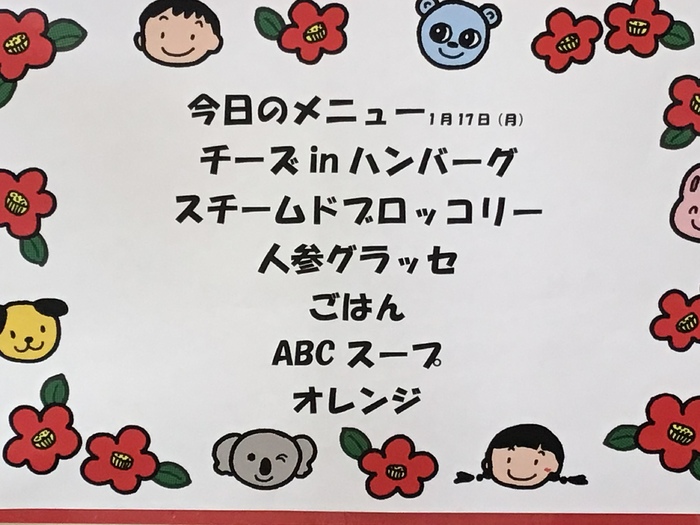 今日のメニュー1月17日(月)
チーズinハンバーグ
スチームドブロッコリー
人参グラッセ
ごはん
ABCスープ
オレンジ